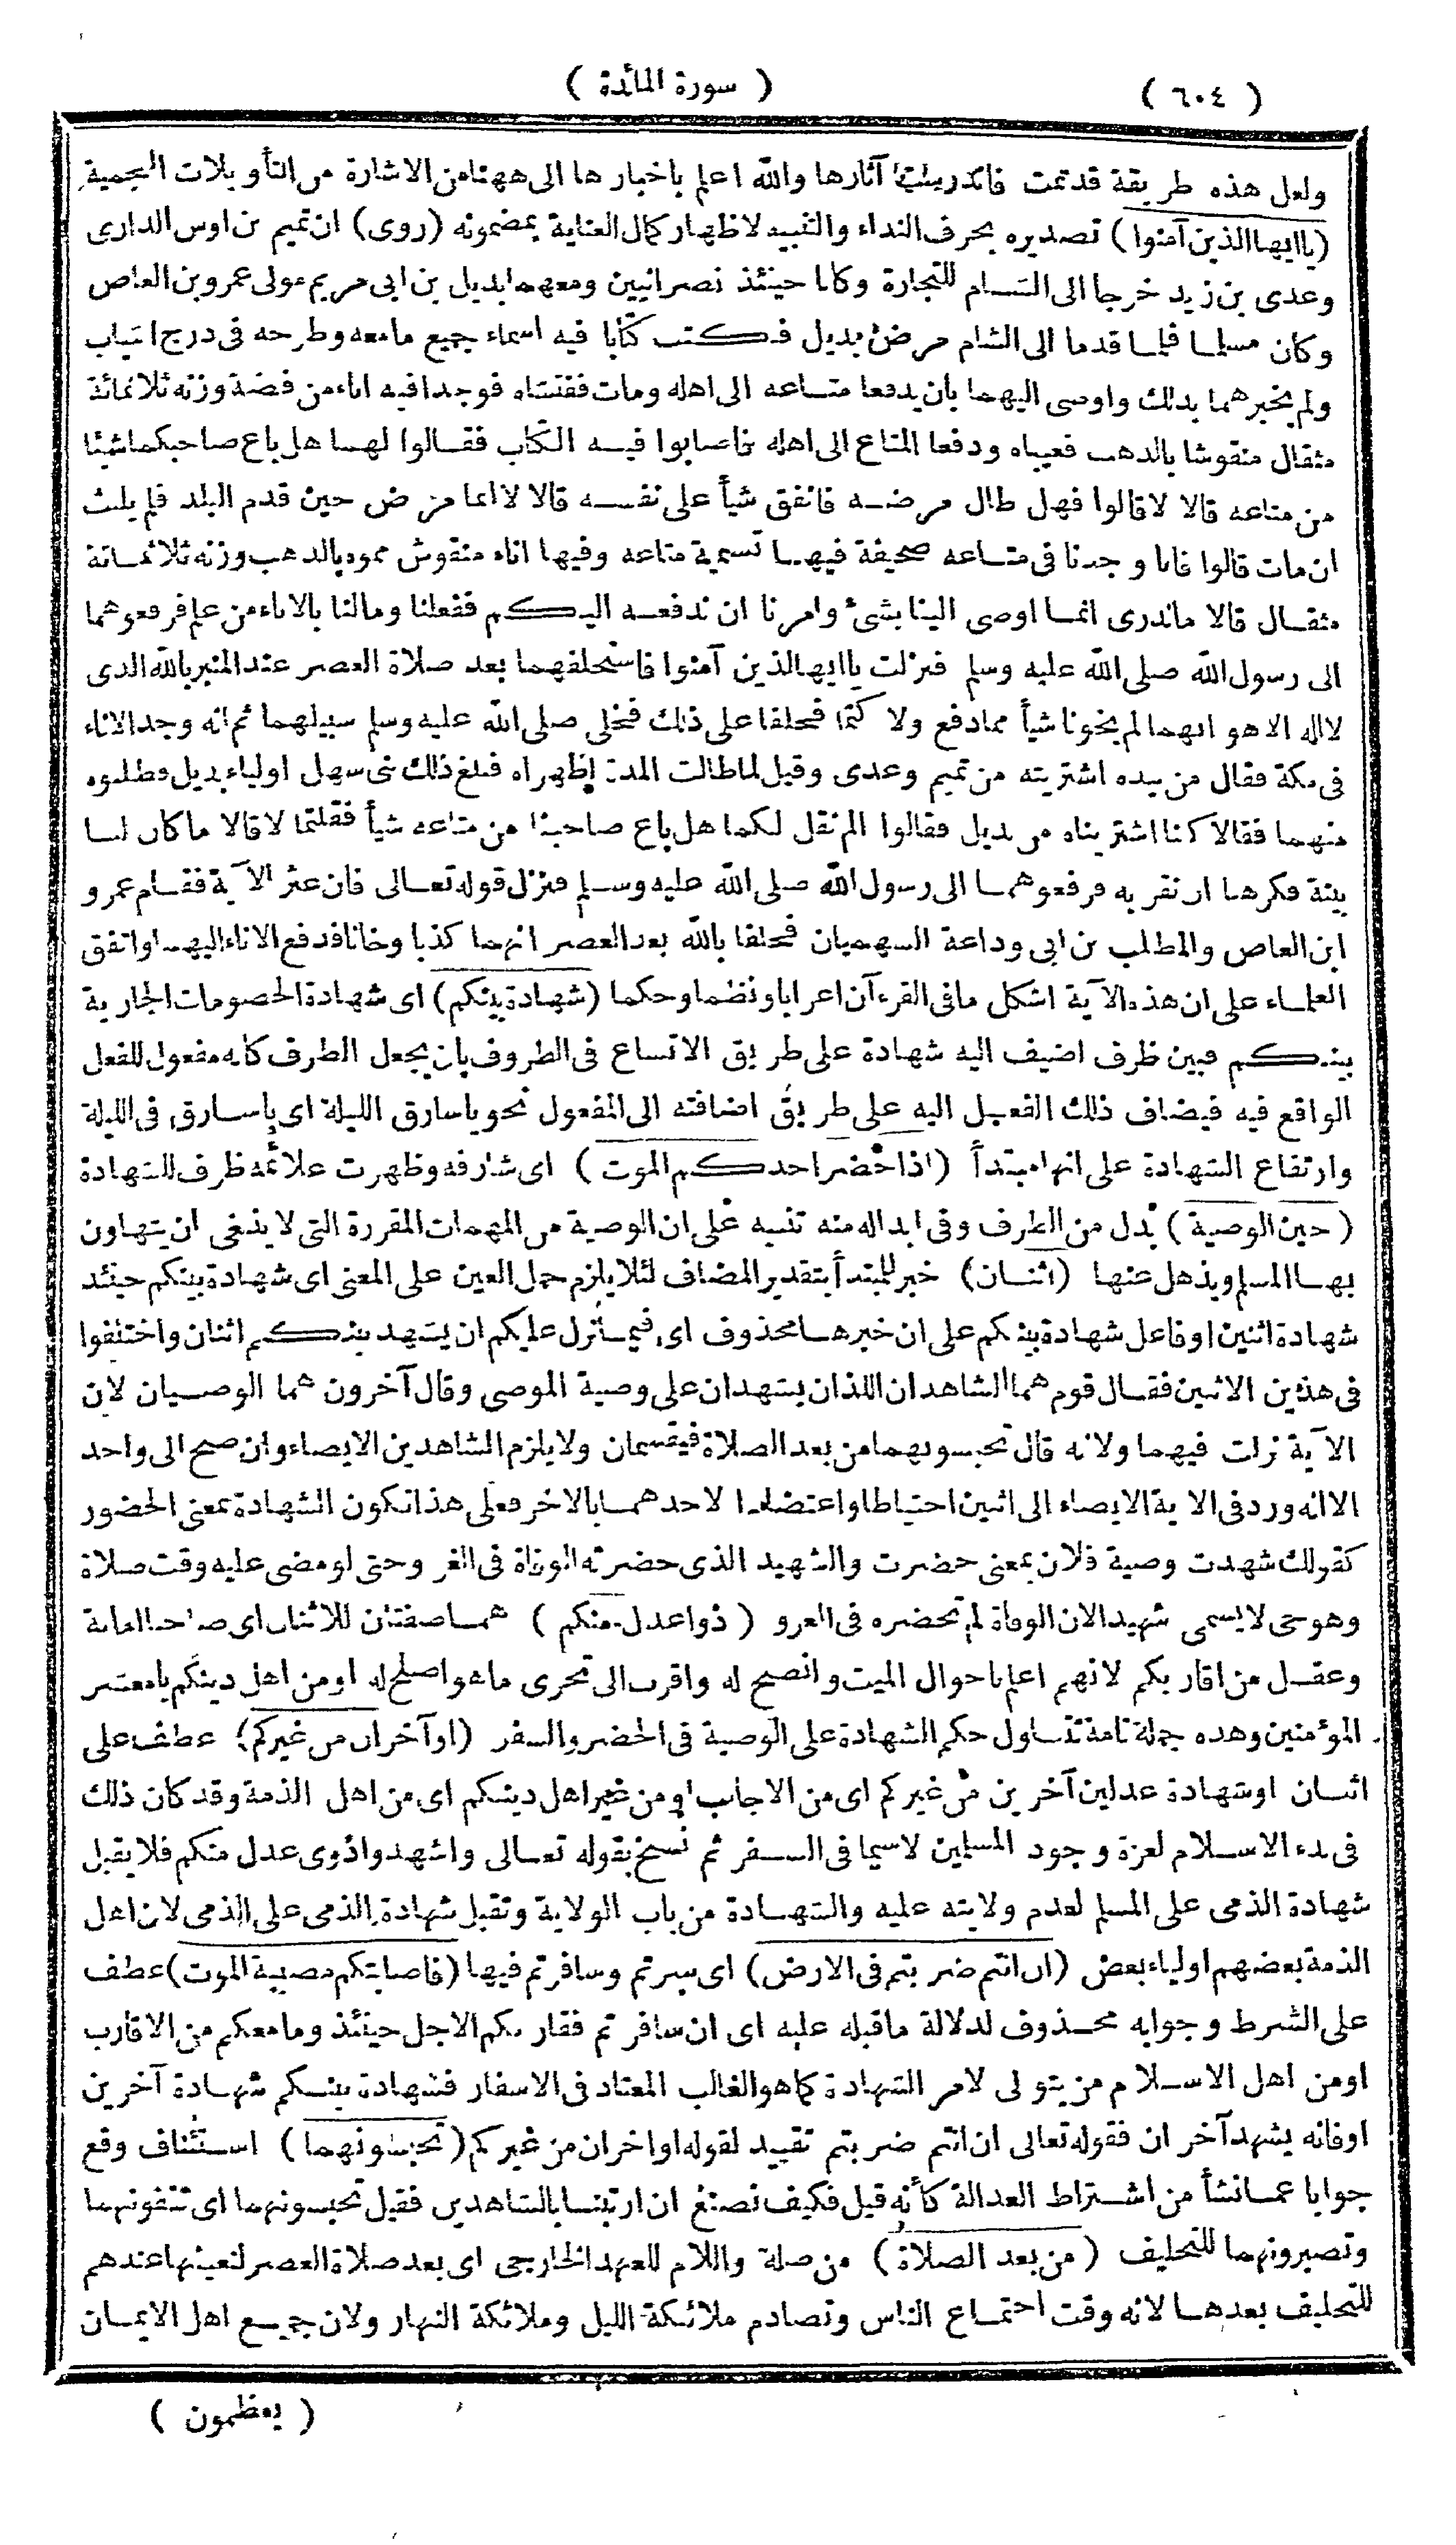 ( ٦٠٤ ) ( سورة المائدة )
ولعل هذه طريقة قد تمت فاندرست آثارها والله اعلم باخبارها الى ههنا من الاشارة من التأويلات النجمية
(ياايها الذين آمنوا) تصديره بحرف النداء والتنبيه لاظهار كمال العناية بمضمونه (روى) ان تميم بن اوس الدارى
وعدى بن زيد خرجا الى الشام للتجارة وكانا حينئذ نصرانيين ومعهما بديل بن ابى مريم مولى عمرو بن العاص
وكان مسلما فلما قدما الى الشام مرض بديل فكتب كتابا فيه اسماء جميع ما معه وطرحه فى درج الثياب
ولم يخبرهما بذلك واوصى اليهما بان يدفعا متاعه الى اهله ومات ففتشاه فوجدا فيه اناء من فضة وزنه ثلاثمائة
مثقال منقوشا بالذهب فغيباه ودفعا المتاع الى اهله فاصابوا فيه الكتاب فقالوا لهما هل باع صاحبكما شيئا
من متاعه قالا لا قالوا فهل طال مرضه فانفق شيأ على نفسه قالا لا انما مرض حين قدم البلد فلم يلبث
ان مات قالوا فانا وجدنا فى متاعه صحيفة فيها تسمية متاعه وفيها اناء منقوش مموه بالذهب وزنه ثلاثمائة
مثقال قالا ماندرى انما اوصى الينا بشئ وامرنا ان ندفعه اليكم ففعلنا ومالنا بالاناء من علم فرفعوهما
الى رسول الله صلى الله عليه وسلم فنزلت ياايها الذين آمنوا فاستحلفهما بعد صلاة العصر عند المنبر بالله الذى
لااله الا هو انهما لم يخونا شيأ مما دفع ولا كتما فحلفا على ذلك فخلى صلى الله عليه وسلم سبيلهما ثم انه وجد الاناء
فى مكة فقال من بيده اشتريته من تميم وعدى وقيل لما طالت المدة اظهراه فبلغ ذلك بنى سهل اولياء بديل فطلبوه
منهما فقالا كنا اشتريناه من بديل فقالوا الم نقل لكما هل باع صاحبنا من متاعه شيأ فقلتما لا قالا ما كان لنا
بينة فكرهنا ان نقر به فرفعوهما الى رسول الله صلى الله عليه وسلم فنزل قوله تعالى فان عثر الآية فقام عمرو
ابن العاص والمطلب بن ابى وداعة السهميان فحلفا بالله بعد العصر انهما كذبا وخانا فدفع الاناء اليهما واتفق
العلماء على ان هذه الآية اشكل ما فى القرءآن اعرابا ونظما وحكما (شهادة بينكم) اى شهادة الخصومات الجارية
بينكم فبين ظرف اضيف اليه شهادة على طريق الاتساع فى الظروف بان يجعل الظرف كأنه مفعول للفعل
الواقع فيه فيضاف ذلك الفعل اليه على طريق اضافته الى المفعول نحو ياسارق الليلة اى ياسارق فى الليلة
وارتفاع الشهادة على انها مبتدأ (اذا حضر احدكم الموت) اى شارفه وظهرت علائمه ظرف للشهادة
(حين الوصية) بدل من الظرف وفى ابداله منه تنبيه على ان الوصية من المهمات المقررة التى لا ينبغى ان يتهاون
بها المسلم ويذهل عنها (اثنان) خبر للمبتدأ بتقدير المضاف لئلا يلزم حمل العين على المعنى اى شهادة بينكم حينئذ
شهادة اثنين او فاعل شهادة بينكم على ان خبرها محذوف اى فيما نزل عليكم ان يشهد بينكم اثنان واختلفوا
فى هذين الاثنين فقال قوم هما الشاهدان اللذان يشهدان على وصية الموصى وقال آخرون هما الوصيان لان
الآية نزلت فيهما ولانه قال تحبسونهما من بعد الصلاة فيقسمان ولا يلزم الشاهدين الايصاء وان صح الى واحد
الا انه ورد فى الاية الايصاء الى اثنين احتياطا واعتضادا لاحدهما بالاخر فعلى هذا تكون الشهادة بمعنى الحضور
كقولك شهدت وصية فلان بمعنى حضرت والشهيد الذى حضرته الوفاة فى الغزو حتى لو مضى عليه وقت صلاة
وهو حى لا يسمى شهيدا لان الوفاة لم تحضره فى الغزو (ذوا عدل منكم) هما صفتان للاثنان اى صاحبا امانة
وعقل من اقاربكم لانهم اعلم باحوال الميت وانصح له واقرب الى تحرى ما هو اصلح له او من اهل دينكم يامعشر
المؤمنين وهذه جملة تامة تتناول حكم الشهادة على الوصية فى الحضر والسفر (او آخران من غيركم) عطف على
اثنان او شهادة عدلين آخرين من غيركم اى من الاجانب او من غير اهل دينكم اى من اهل الذمة وقد كان ذلك
فى بدء الاسلام لعزة وجود المسلمين لاسيما فى السفر ثم نسخ بقوله تعالى واشهدوا ذوى عدل منكم فلا يقبل
شهادة الذمى على المسلم لعدم ولايته عليه والشهادة من باب الولاية وتقبل شهادة الذمى على الذمى لان اهل
الذمة بعضهم اولياء بعض (ان انتم ضربتم فى الارض) اى سرتم وسافرتم فيها (فاصابتكم مصيبة الموت) عطف
على الشرط وجوابه محذوف لدلالة ما قبله عليه اى ان سافرتم فقاربكم الاجل حينئذ وما معكم من الاقارب
او من اهل الاسلام من يتولى لامر الشهادة كما هو الغالب المعتاد فى الاسفار فشهادة بينكم شهادة آخرين
او فانه يشهد آخران فقوله تعالى ان انتم ضربتم تقييد لقوله او اخران من غيركم (تحبسونهما) استئناف وقع
جوابا عما نشأ من اشتراط العدالة كأنه قيل فكيف نصنع ان ارتبنا بالشاهدين فقيل تحبسونهما اى تقفونهما
وتصبرونهما للتحليف (من بعد الصلاة) من صلة واللام للعهد الخارجى اى بعد صلاة العصر لتعينها عندهم
للتحليف بعدها لانه وقت اجتماع الناس وتصادم ملائكة الليل وملائكة النهار ولان جميع اهل الايمان
( يعظمون )